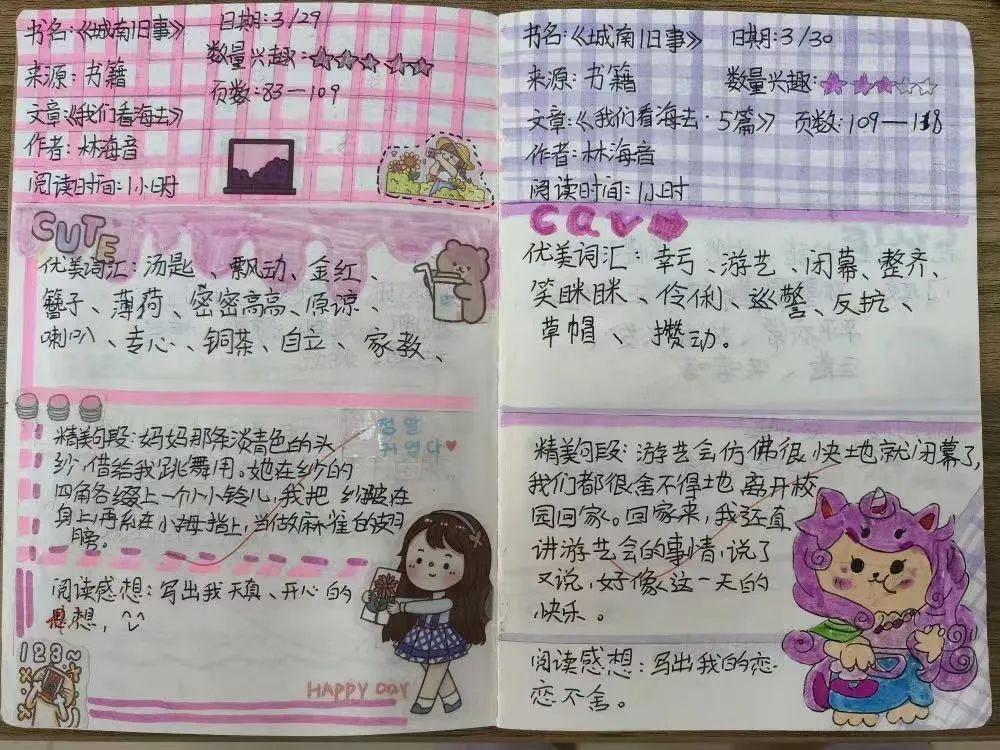 书名:《城南旧事》 日期:3/29
数量兴趣:☆☆☆☆☆
来源:书籍
页数:83—109
文章《我们看海去》
作者:林海音
阅读时间:1小时
CUTE
优美词汇:汤匙、飘动、金红、
簪子、薄荷、密密高高、原谅、
喇叭、专心、铜茶、自立、家教、
精美句段:妈妈那年淡青色的头
纱,借给我跳舞用。她在纱的
四角各缀上一个小小铃儿,我把纱披在
身上,再系在小拇指上,当做麻雀的翅
膀。
정말
귀엽다
阅读感想:写出我天真、开心的
思想,
123~
HAPPY DAY
书名:《城南旧事》 日期:3/30
来源:书籍 数量兴趣:★★★☆☆
文章:《我们看海去·5篇》 页数:109—118
作者:林海音
阅读时间:1小时
优美词汇:幸亏、游艺、闭幕、整齐、
笑眯眯、伶俐、巡警、反抗、
草帽、攒动。
精美句段:游艺会仿佛很快地就闭幕了,
我们都很舍不得地离开校
园回家。回家来,我还直
讲游艺会的事情,说了
又说,好像这一天的
快乐。
阅读感想:写出我的恋
恋不舍。